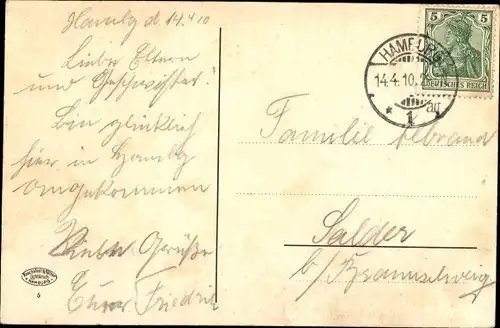 Hambg d. 14.4.10
Liebe Eltern
und Geschwister!
Bin glücklich
hier in Hambg
angekommen
Liebe Grüße
Euer Friedrich
5
5
DEUTSCHES REICH
HAMBURG
14.4.10.
* 1
Familie
Salder
b/Braunschweig
HAMBURG
5